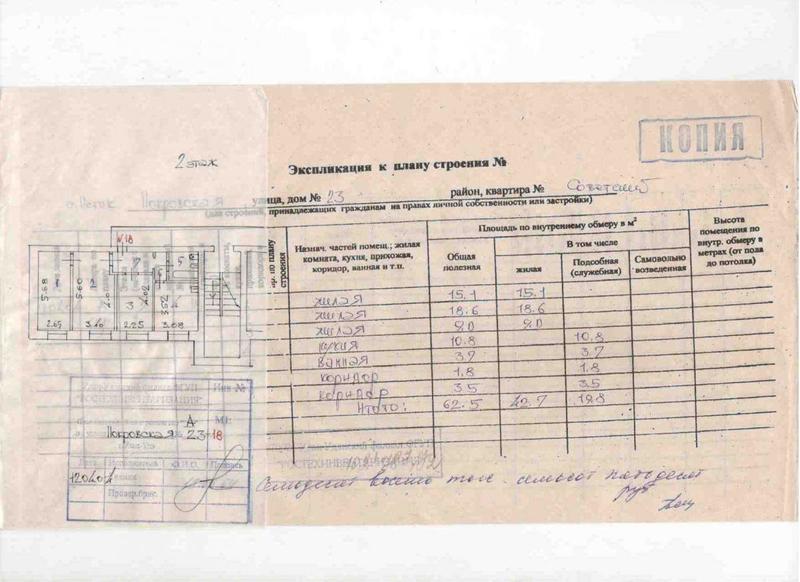 КОПИЯ
2 этаж
Экспликация к плану строения №
Покровская улица, дом № 23 район, квартира № Советский
(для строений, принадлежащих гражданам на правах личной собственности или застройки)
по плану строения
Назнач. частей помещ.; жилая комната, кухня, прихожая, коридор, ванная и т.п.
Площадь по внутреннему обмеру в м²
Общая полезная
В том числе
жилая
Подсобная (служебная)
Самовольно возведенная
Высота помещения по внутр. обмеру в метрах (от пола до потолка)
жилая 15.1 15.1
жилая 18.6 18.6
жилая 9.0 9.0
кухня 10.8 10.8
ванная 3.7 3.7
коридор 1.8 1.8
коридор 3.5 3.5
Итого: 62.5 42.7 19.8
№18
5.68
5.60
4.02
3.52
2.65
3.40
2.25
3.08
Инв №
А
М1:
Покровская 23-18
Дата
Исполнитель
Ф.И.О.
Подпись
Провер.бриг.
Семьдесят восемь тыс. семьсот пятьдесят
руб